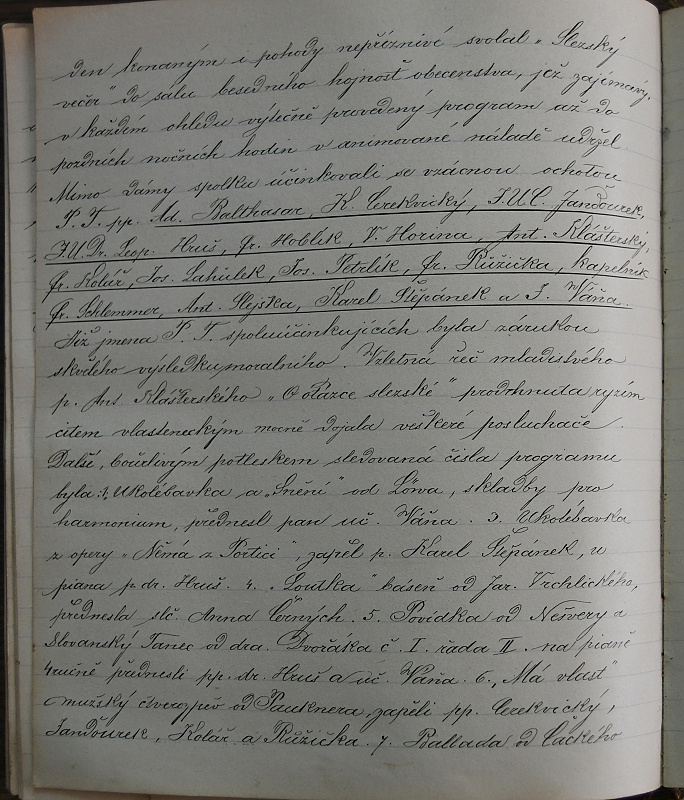 den konaným i pohody nepříznivé svolal „Slezský
večer" do sálu besedního hojnost obecenstva, jež zajímavý,
v každém ohledu výtečně provedený program až do
pozdních nočních hodin v animované náladě udržel
Mimo dámy spolku účinkovali se vzácnou ochotou
P. T. pp. Ad. Balthasar, K. Cerekvický, J.U.C. Jandourek,
J.U.Dr. Leop. Hruš, Fr. Hoblík, V. Horina, Ant. Klášterský,
Fr. Kolář, Jos. Lahůlek, Jos. Petrlík, Fr. Růžička, kapelník
Fr. Schlemmer, Ant. Slejska, Karel Štěpánek a J. Váňa.
Již jmena P. T. spoluúčinkujících byla zárukou
skvělého výsledku moralního. Vzletná řeč mladistvého
p. Ant. Klášterského „O otázce slezské" prodchnuta ryzím
citem vlasteneckým mocně dojala veškeré posluchače.
Další, bouřlivým potleskem sledovaná čísla programu
byla: 1. Ukolébavka a „Snění" od Löwa, skladby pro
harmonium, přednesl pan uč. Váňa. 3. Ukolébavka
z opery „Němá z Portici", zapěl p. Karel Štěpánek, u
piana p. dr. Hruš. 4. „Loutka" báseň od Jar. Vrchlického,
přednesla slč. Anna Černých. 5. Povídka od Nešvery a
Slovanský Tanec od dra. Dvořáka č. I. řada II. na pianě
4ručně přednesli pp. dr. Hruš a uč. Váňa. 6. „Má vlast"
mužský čtverozpěv od Pauknera, zapěli pp. Cerekvický,
Jandourek, Kolář a Růžička. 7. Ballada od Čackého